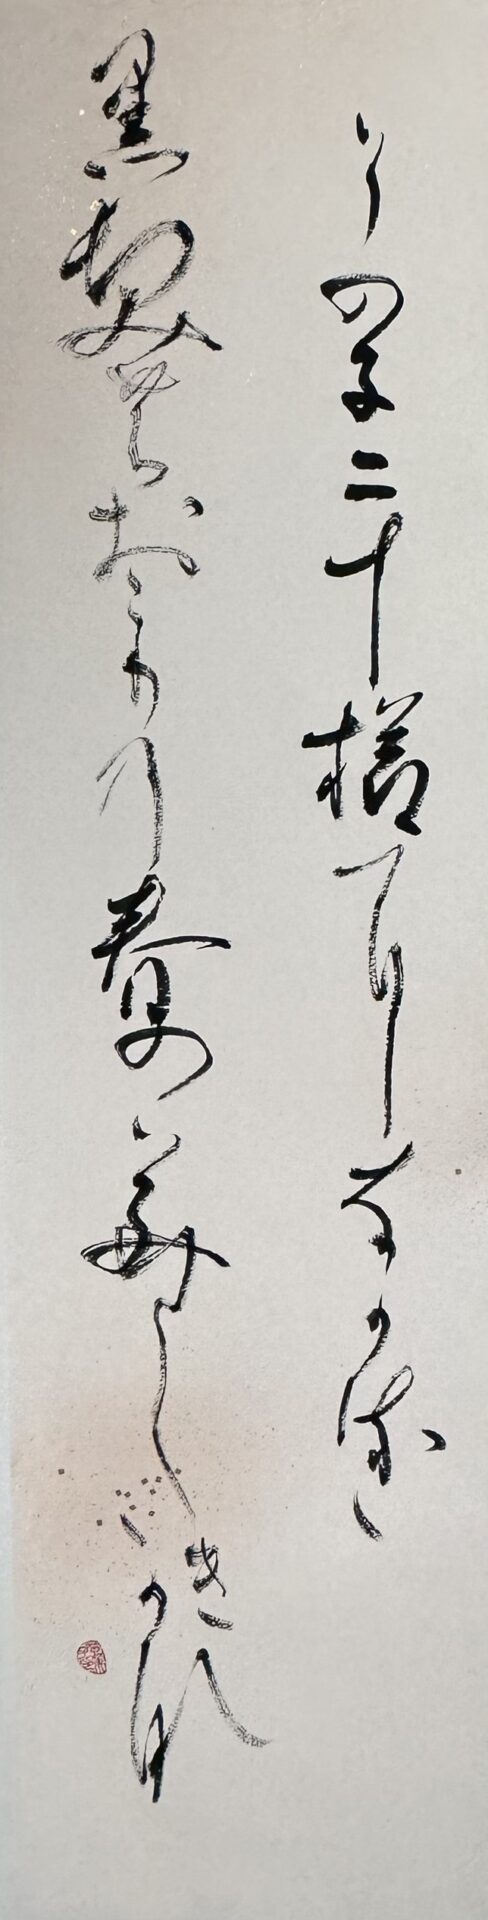 その子二十櫛にながるゝ
黒髪のおごりの春のうつくしきかな